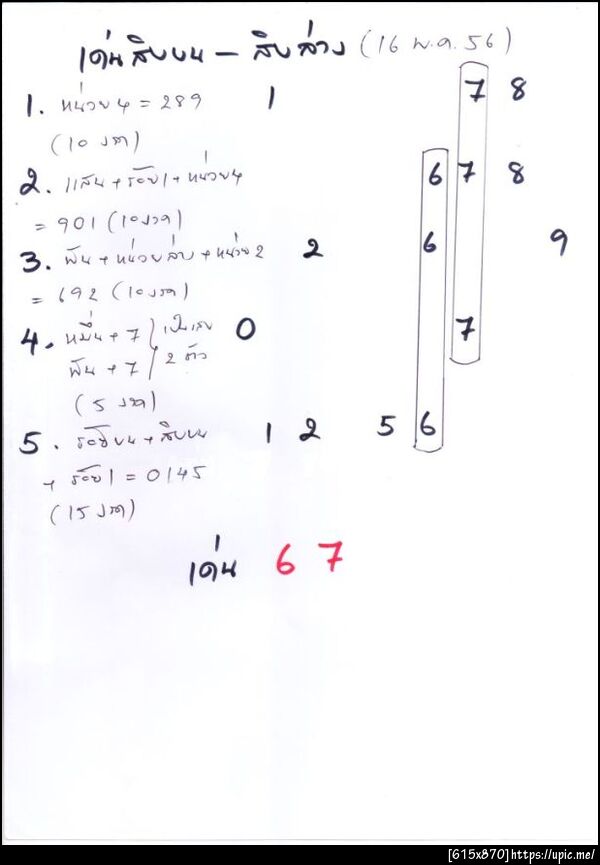 เด่นสิบบน - สิบล่าง (16 พ.ค. 56)
1. หน่วย4 = 289 1 7 8
(10 งวด)
2. แสน + ร้อย1 + หน่วย4 6 7 8
= 901 (10งวด)
3. พัน + หน่วยล่าง + หน่วย2 2 6 9
= 692 (10งวด)
4. หมื่น + 7 เป็นเลข 0 7
พัน + 7 2 ตัว
(5 งวด)
5. ร้อยบน + สิบบน 1 2 5 6
+ ร้อย1 = 0145
(15 งวด)
เด่น 6 7
[615x870]https://upic.me/